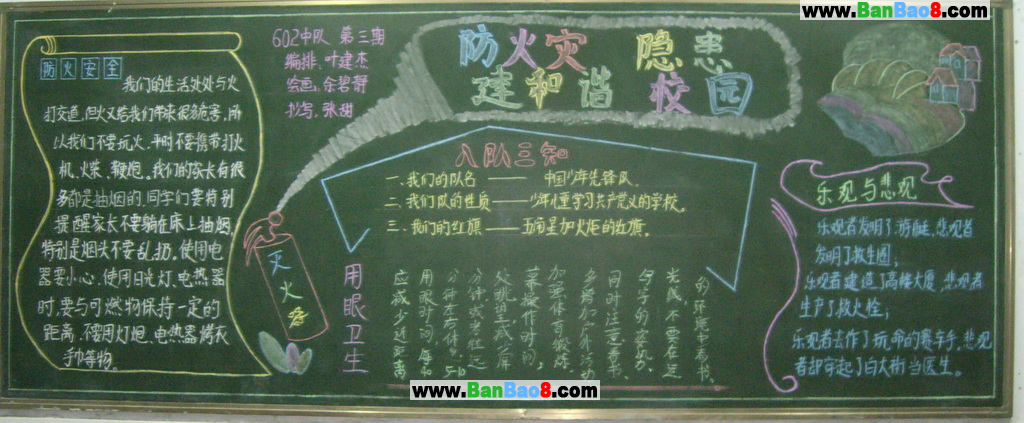 www.BanBao8.com
602中队 第三期
编排：叶建杰
绘画：余碧舒
书写：张甜
防火灾 隐患
建和谐 校园
防火安全
我们的生活处处与火
打交道，但火又给我们带来很多危害，所
以我们不要玩火，平时不要携带打火
机、火柴、鞭炮。我们的家长有很
多都是抽烟的，同学们要特别
提醒家长不要躺在床上抽烟，
特别是烟头不要乱扔。使用电
器要小心，使用日光灯、电热器
时，要与可燃物保持一定的
距离，不要用灯炮、电热器烤衣
巾等物。
灭火器
入队三知
一、我们的队名 —— 中国少年先锋队。
二、我们队的性质 —— 少年儿童学习共产党义的学校。
三、我们的红旗 —— 五角星加火炬的红旗。
用眼卫生
应减少近距离
用眼时间，每40
分钟左右休息5-10
分钟，或者往远
处眺望
同时注意看书、
写字的姿势、
光线，不要在过
的环境中看书。
乐观与悲观
乐观者发明了游艇，悲观者
发明了救生圈；
乐观者建造了高楼大厦，悲观者
生产了救火栓；
乐观者去作了玩命的赛车手，悲观
者却穿起了白大褂当医生。
www.BanBao8.com